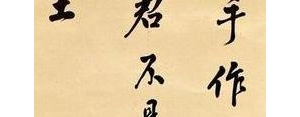 手作
君不見